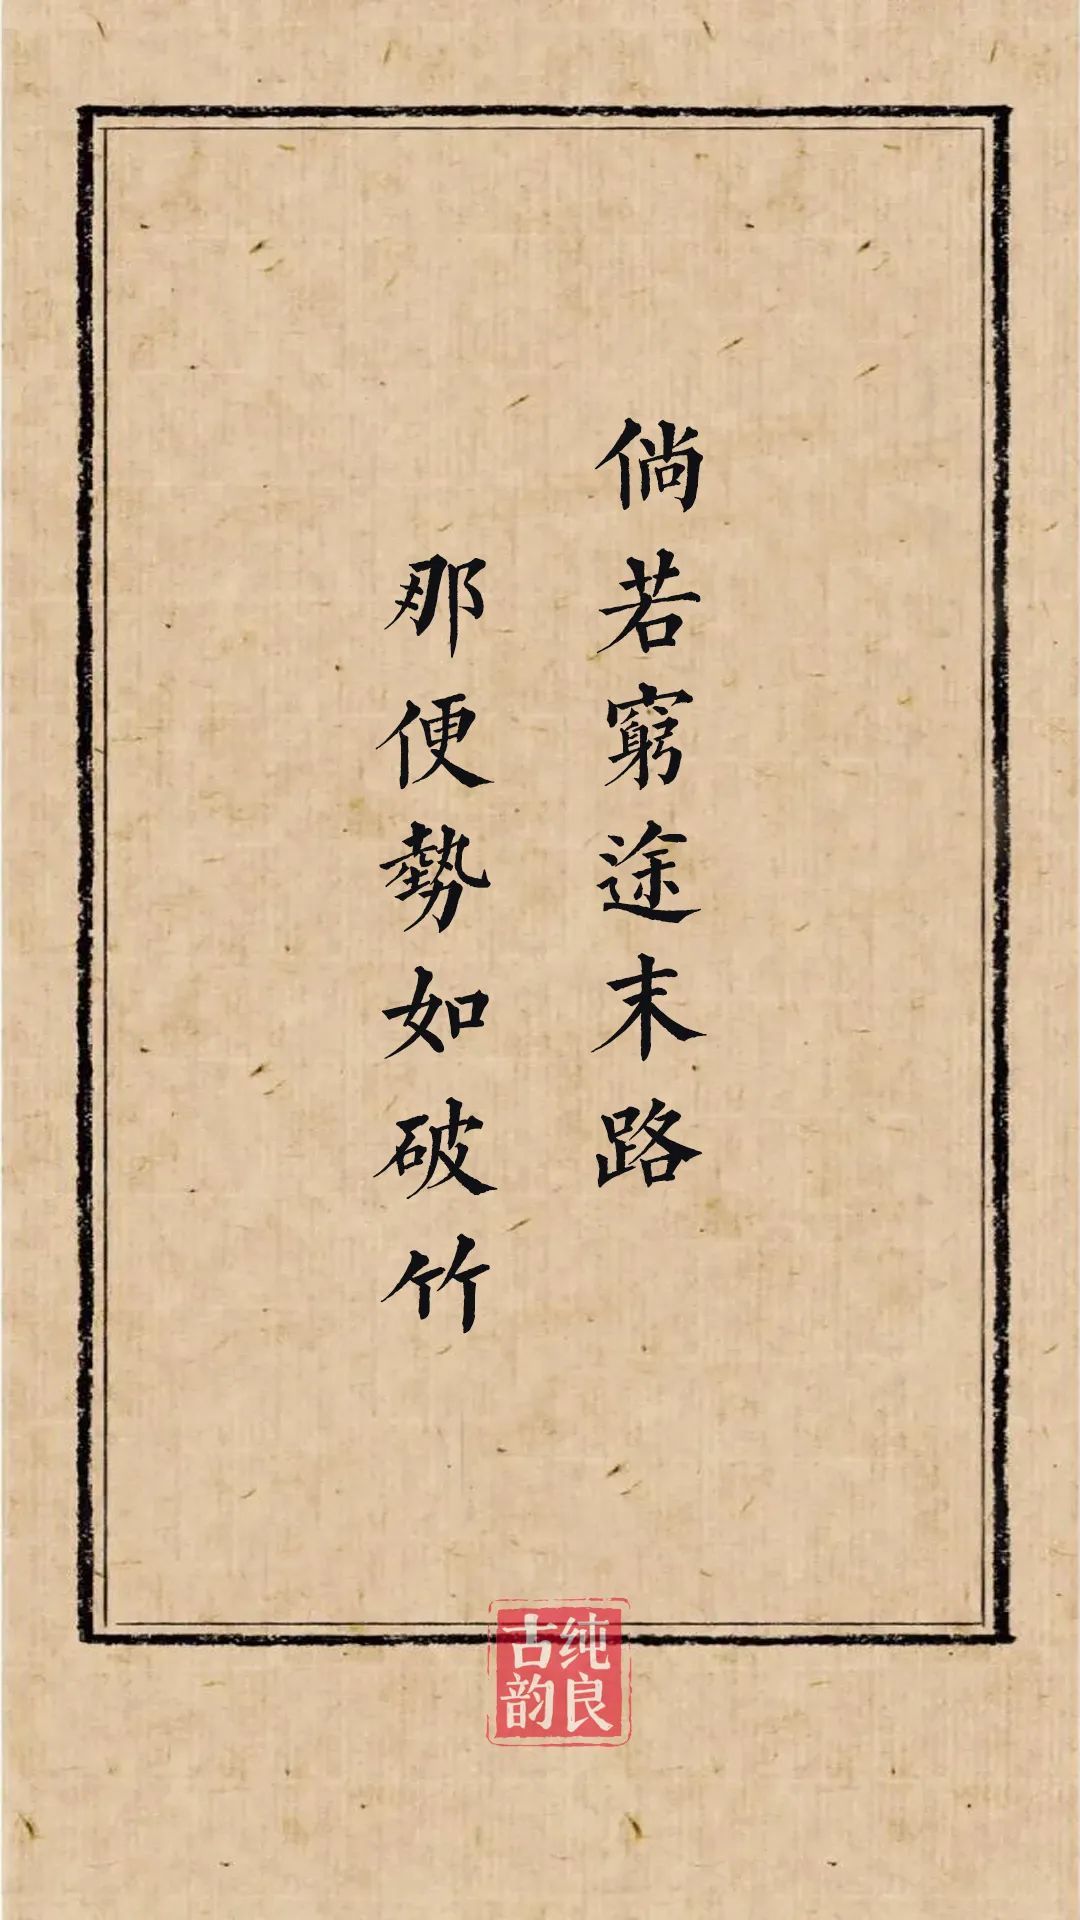 倘若窮途末路
那便勢如破竹
纯良
古韵